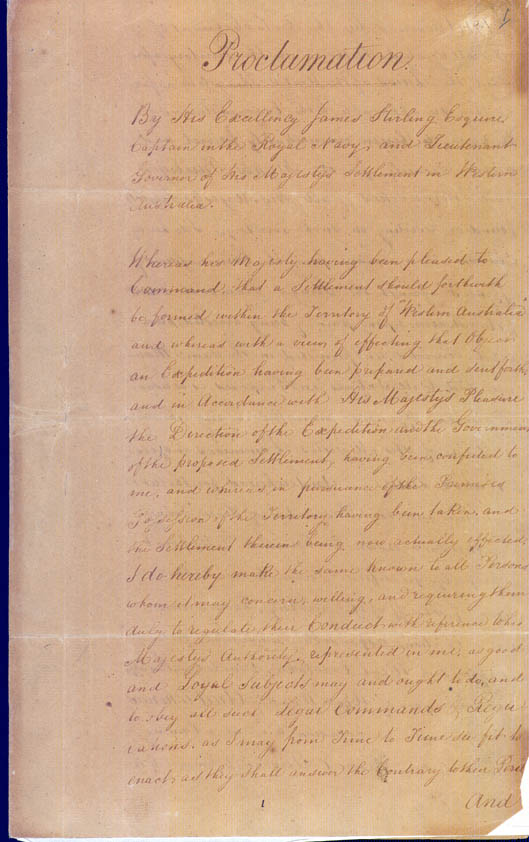 1
Proclamation.
By His Excellency James Stirling Esquire
Captain in the Royal Navy, and Lieutenant
Governor of His Majestys Settlement in Western
Australia.
Whereas his Majesty having been pleased to
Command, that a Settlement should forthwith
be formed within the Territory of Western Australia
and whereas with a view of effecting that Object
an Expedition having been prepared and sent forth,
and in Accordance with His Majestys Pleasure
the Direction of the Expedition and the Government
of the proposed Settlement, having been, confided to
me, and whereas in pursuance of the Premises
Possession of the Territory having been taken, and
the Settlement therein being now actually effected,
I do hereby make the same known to all Persons
whom it may concern, willing, and requiring them
duly to regulate their Conduct with reference to His
Majestys Authority, represented in me, as good
and Loyal Subjects may and ought to do, and
to obey all such Legal Commands & Regu
lations, as I may from Time to Time see fit to
enact, as they shall answer the Contrary to their Peril
1
And